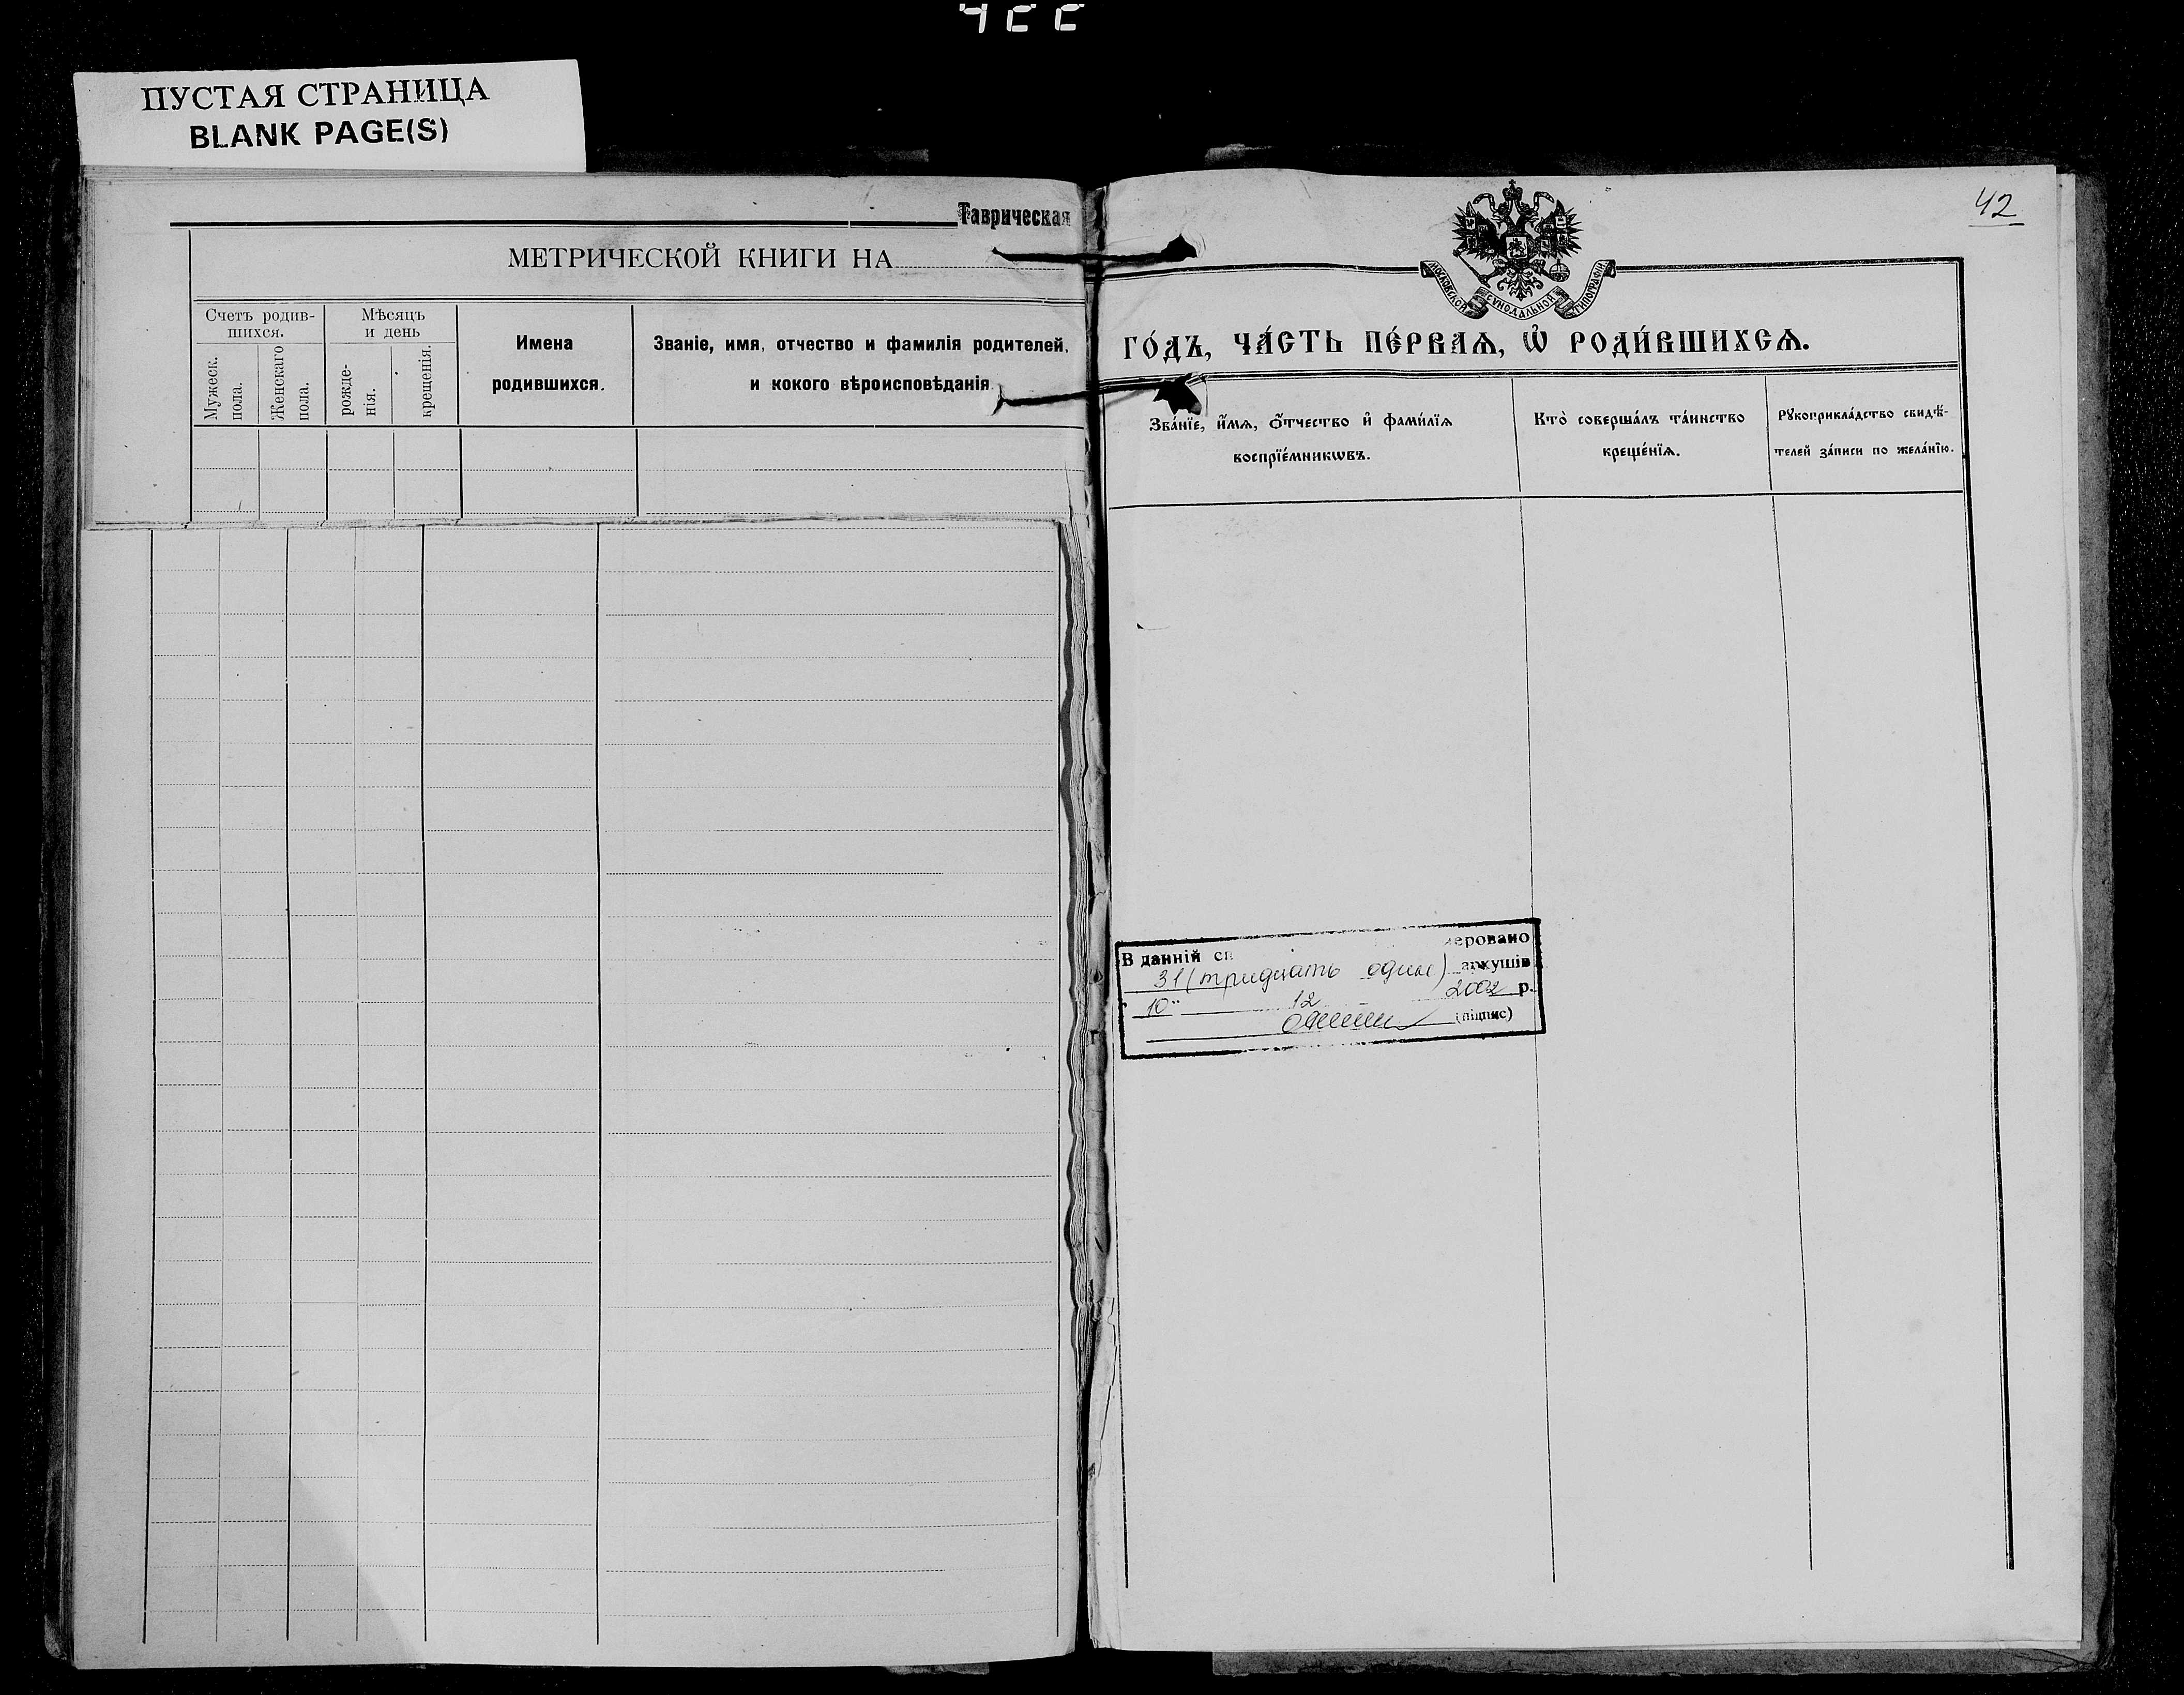 ПУСТАЯ СТРАНИЦА
BLANK PAGE(S)
Таврическая
МЕТРИЧЕСКОЙ КНИГИ НА
Счетъ родив-
шихся.
Мужеск.
пола.
Женскаго
пола.
Мѣсяцъ
и день
рожде-
нія.
крещенія.
Имена
родившихся.
Званіе, имя, отчество и фамилія родителей,
и кокого вѣроисповѣданія
42
МОСКОВСКОЙ СѴНОДАЛЬНОЙ ТИПОГРАФІИ
ГО́ДЪ, ЧА́СТЬ ПЕ́РВАѦ, Ѡ҆ РОДИ́ВШИХСѦ.
Зва́нїе, и҆́мѧ, ѻ҆́тчество и҆ фами́лїѧ
воспрїе́мникѡвъ.
Кто̀ соверша́лъ та́инство
креще́нїѧ.
Рꙋкоприкла́дство свидѣ́-
телей за́писи по жела́нїю.
В данній сп еровано
31 (тридцать один) аркушів
10" 12 2002 р.
(підпис)